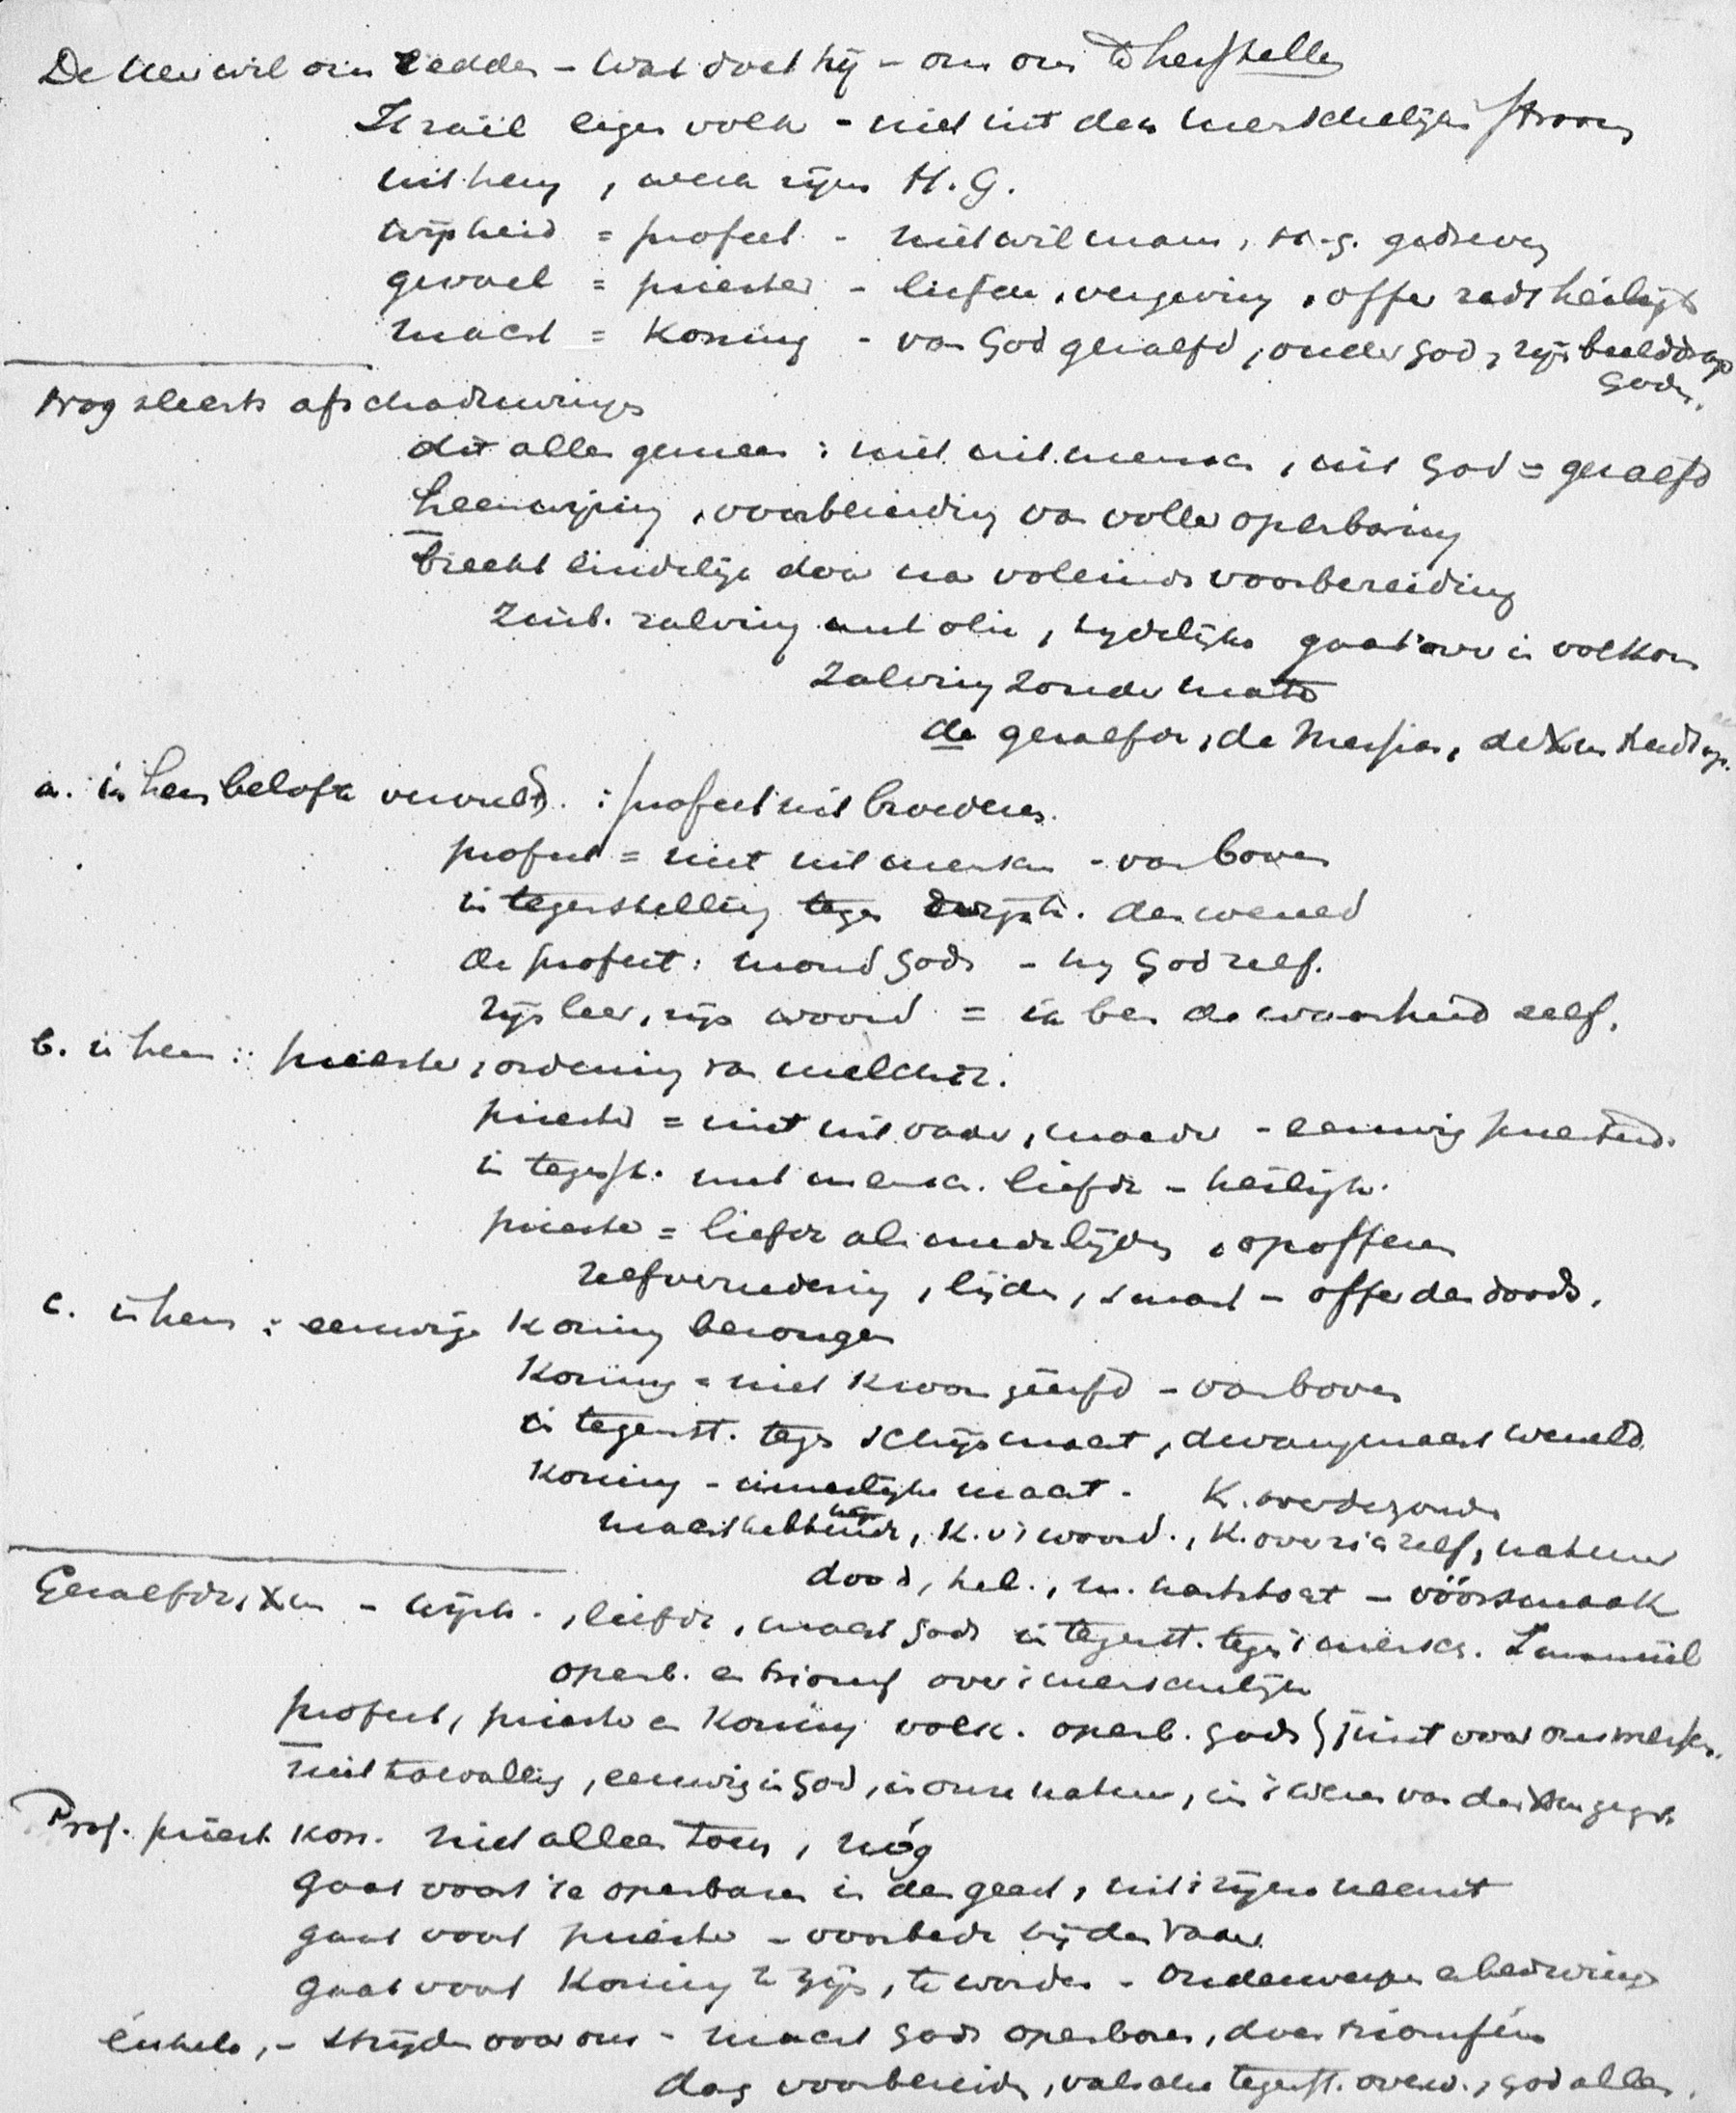 De Heer wil ons redden - wat doet hij - om ons te herstellen
Israël eigen volk - niet uit den menschelijken stroom
uit hem, werk zijns H.G.
wijsheid = profeet - niet wil mans, H.G. gedreven
gevoel = priester - liefde, vergeving, offer heiligh
macht = Koning - van God gezalfd, onder God, zijn beelddrager Gods.
Nog slechts afschaduwingen
dit alles gemeen: niet uit mensch, uit God = gezalfd
heenwijzing, voorbereiding van volle openbaring
breekt eindelijk door na voleinde voorbereiding
zinb. zalving met olie, tijdelijke gaat over in volkom
zalving zonder mate
de gezalfde, de Messias,
a. in hem belofte vervuld. : profeet uit broederen.
profeet = niet uit mensch - van boven
in tegenstelling tegen wijsh. der wereld
de profeet: mond Gods - hij God zelf.
zijn leer, zijn woord = ik ben de waarheid zelf.
b. in hem: priester, ordening van Melchiz.
priester = niet uit vader, moeder - eeuwig
in tegenst. met mensch. liefde - heiligh.
priester = liefde als medelijden, opofferen
zelfvernedering, lijden, smart - offer des doods.
c. in hem: eeuwige Koning bezongen
Koning = niet - van boven
in tegenst. tegen schijnmacht, dwangmacht wereld.
Koning - innerlijke macht - K. over de zonde
machthebbende, K. v/ woord., K. over zich zelf, natuur
dood, hel., - vóórsmaak
Gezalfde, Xus - wijsh., liefde, macht Gods in tegenst. tegen mensch. Immanuël
openb. en triomf over menschelijke
profeet, priester en Koning volk. openb. Gods juist voor ons menschen.
niet toevallig, eeuwig in God, in onze natuur,
Prof. priest. kon. niet alleen toen, nóg
gaat voort te openbaren in den geest, uit 't zijne neemt
gaat voort priester - voorbede bij den Vader
gaat voort Koning te zijn, te worden - onderwerpen
enkele, - strijden voor ons - macht Gods openbaren, doen triomfeeren
dag voorbereiden, tegenst. overw., God alles.